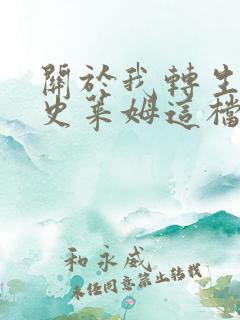 關於我轉生
史萊姆這檔
和永威
未經同意禁止轉載